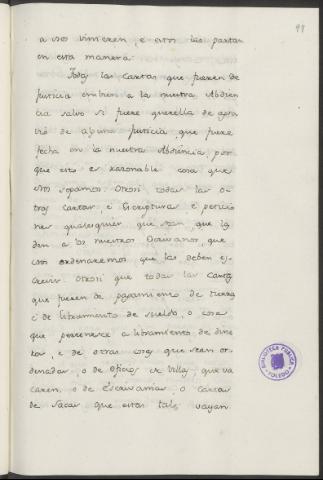 99
a vos vinieren, e estos las partan
en esta manera:
Todas las Cartas que fueren de
justicia embien a la nuestra Abdien
cia salvo si fuere querella de
de alguna justicia, que fuere
fecha en la nuestra Abdiencia, por
que esto es razonable cosa que
Nos sepamos. Otrosi todas las o
tras Cartas, e Escripturas e peticio
nes qualesquier que sean, que las
den a los nuestros Escrivanos, que
Nos ordenaremos que las deben es
creuir. Otrosi que todas las Cartas
que fueren de pagamiento de tierra
e de libramiento de sueldo, o cosa
que pertenesce a libramiento de dine
ros, e de otras cosas que sean or
denadas, o de Oficios de Villas, que va
caren, o de Escrivanias, o Cartas
de Sacas que estas tales vayan
BIBLIOTECA PUBLICA
TOLEDO